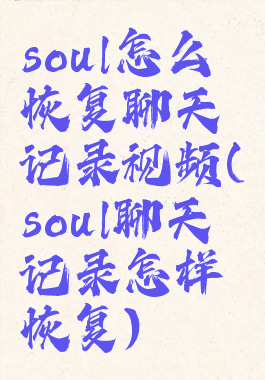 soul怎么
恢复聊天
记录视频(
soul聊天
记录怎样
恢复)